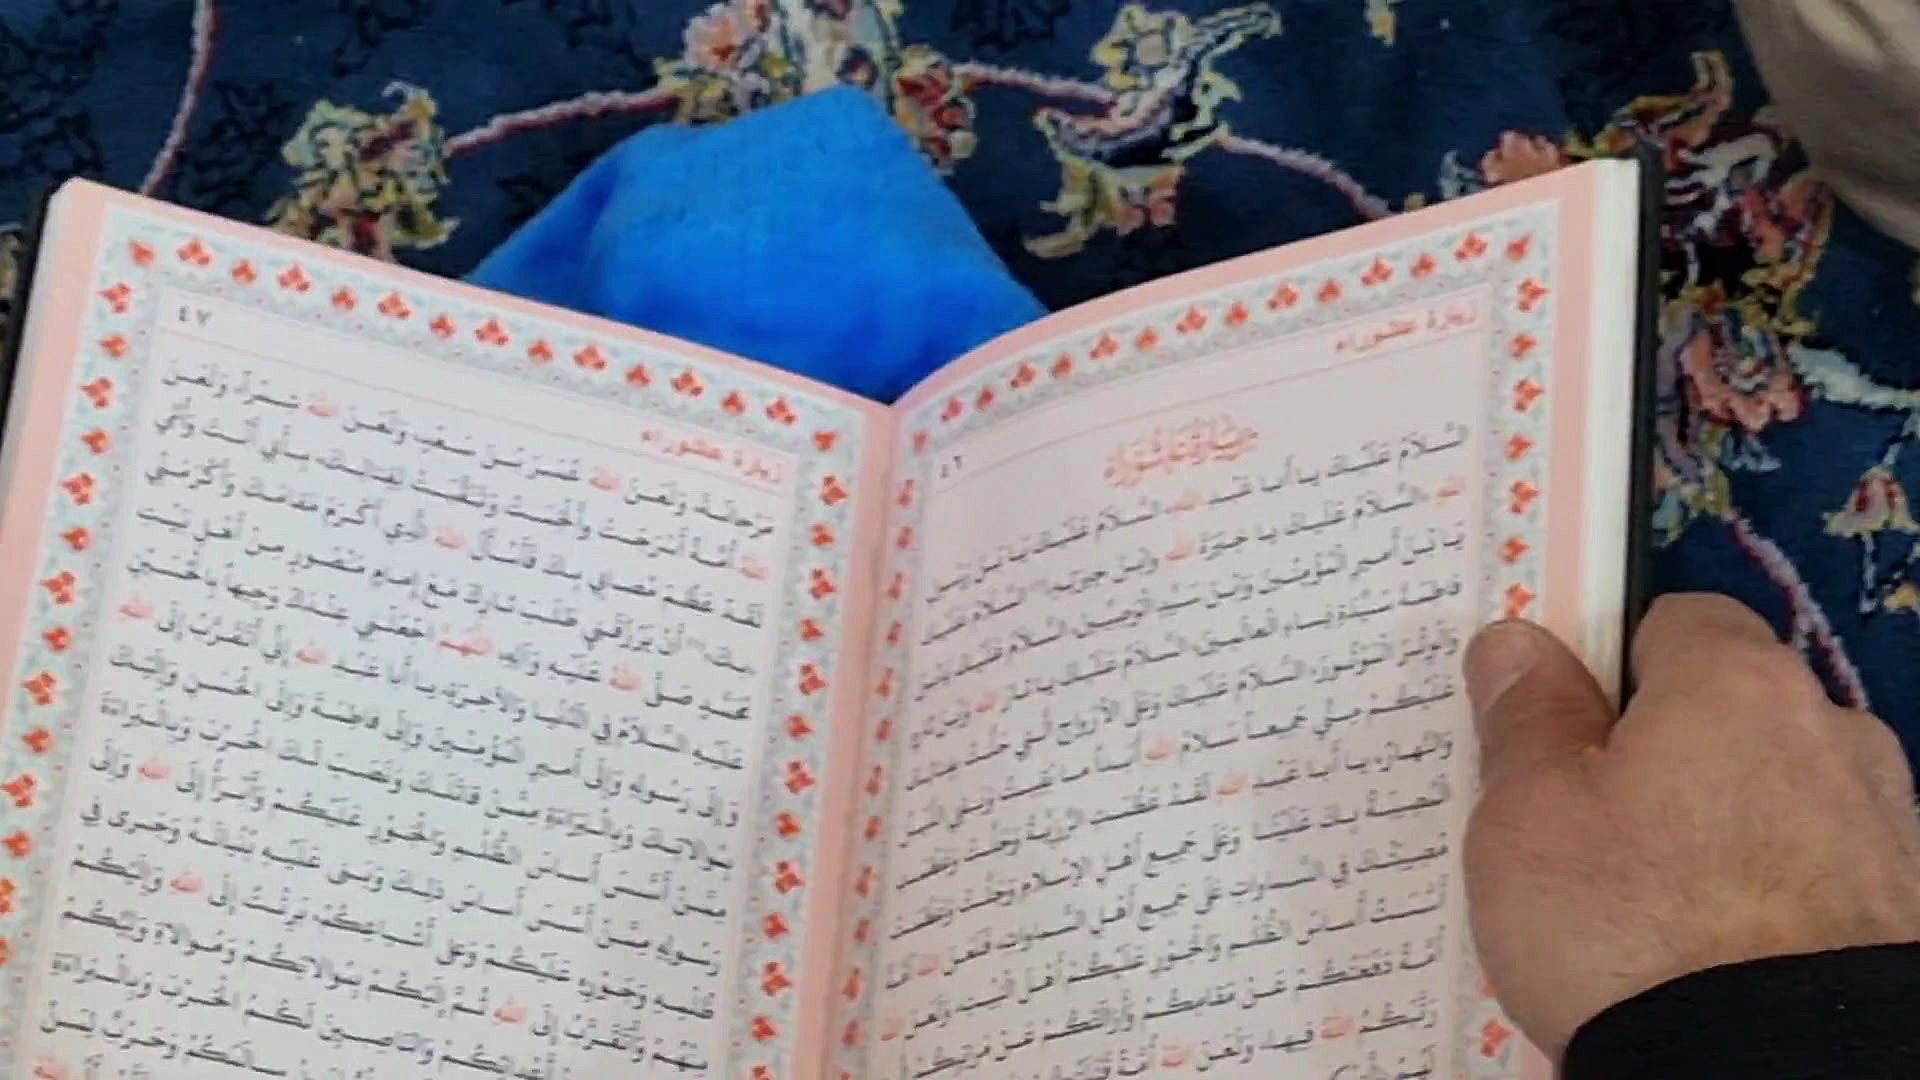 زيارة عاشوراء
٤٦
زيارة عاشوراء
السَّلامُ عَلَيْكَ يا أَبا عَبْدِ اللهِ، السَّلامُ عَلَيْكَ يَا بْنَ رَسُولِ
اللهِ السَّلامُ عَلَيْكَ يا خِيَرَةَ اللهِ وَابْنَ خِيَرَتِهِ السَّلامُ عَلَيْكَ
يَا بْنَ أَميرِ الْمُؤْمِنينَ وَابْنَ سَيِّدِ الْوَصِيّينَ، السَّلامُ عَلَيْكَ يَابْنَ
فاطِمَةَ سَيِّدَةِ نِساءِ الْعالَمينَ السَّلامُ عَلَيْكَ يا ثارَ اللهِ وَابْنَ ثارِهِ
وَالْوِتْرَ الْمَوْتُورَ، السَّلامُ عَلَيْكَ وَعَلَى الأَرْواحِ الَّتي حَلَّتْ بِفِنائِكَ
عَلَيْكُمْ مِنّي جَميعاً سَلامُ اللهِ أَبَداً ما بَقيتُ وَبَقِيَ اللَّيْلُ
وَالنَّهارُ، يا أَبا عَبْدِ اللهِ لَقَدْ عَظُمَتِ الرَّزِيَّةُ وَجَلَّتْ وَعَظُمَتِ
الْمُصيبَةُ بِكَ عَلَيْنا وَعَلى جَميعِ أَهْلِ الإِسْلامِ وَجَلَّتْ وَعَظُمَتْ
مُصيبَتُكَ فِي السَّماواتِ عَلى جَميعِ أَهْلِ السَّماواتِ، فَلَعَنَ اللهُ أُمَّةً
أَسَّسَتْ أَساسَ الظُّلْمِ وَالْجَوْرِ عَلَيْكُمْ أَهْلَ الْبَيْتِ، وَلَعَنَ اللهُ
أُمَّةً دَفَعَتْكُمْ عَنْ مَقامِكُمْ وَأَزالَتْكُمْ عَنْ مَراتِبِكُمُ
رَتَّبَكُمُ اللهُ فيها، وَلَعَنَ اللهُ أُمَّةً
٤٧
زيارة عاشوراء
مَرْجانَةَ وَلَعَنَ اللهُ عُمَرَ بْنَ سَعْدٍ وَلَعَنَ اللهُ شِمْراً، وَلَعَنَ
اللهُ أُمَّةً أَسْرَجَتْ وَأَلْجَمَتْ وَتَنَقَّبَتْ لِقِتالِكَ، بِأَبي أَنْتَ وَأُمّي
لَقَدْ عَظُمَ مُصابي بِكَ فَأَسْأَلُ اللهَ الَّذي أَكْرَمَ مَقامَكَ وَأَكْرَمَني
بِكَ أَنْ يَرْزُقَني طَلَبَ ثارِكَ مَعَ إِمامٍ مَنْصُورٍ مِنْ أَهْلِ بَيْتِ
مُحَمَّدٍ صَلَّى اللهُ عَلَيْهِ وَآلِهِ اللّهُمَّ اجْعَلْني عِنْدَكَ وَجيهاً بِالْحُسَيْنِ
عَلَيْهِ السَّلامُ فِي الدُّنْيا وَالآخِرَةِ، يا أَبا عَبْدِ اللهِ إِنّي أَتَقَرَّبُ إِلَى اللهِ
وَإِلى رَسُولِهِ وَإِلى أَميرِ الْمُؤْمِنينَ وَإِلى فاطِمَةَ وَإِلَى الْحَسَنِ وَإِلَيْكَ
بِمُوالاتِكَ وَبِالْبَراءَةِ مِمَّنْ قاتَلَكَ وَنَصَبَ لَكَ الْحَرْبَ وَبِالْبَراءَةِ
مِمَّنْ أَسَّسَ أَساسَ الظُّلْمِ وَالْجَوْرِ عَلَيْكُمْ وَأَبْرَأُ إِلَى اللهِ وَإِلى
رَسُولِهِ مِمَّنْ أَسَّسَ أَساسَ ذلِكَ وَبَنى عَلَيْهِ بُنْيانَهُ وَجَرى في
ظُلْمِهِ وَجَوْرِهِ عَلَيْكُمْ وَعَلى أَشْياعِكُمْ، بَرِئْتُ إِلَى اللهِ وَإِلَيْكُمْ
مِنْهُمْ وَأَتَقَرَّبُ إِلَى اللهِ ثُمَّ إِلَيْكُمْ بِمُوالاتِكُمْ وَمُوالاةِ وَلِيِّكُمْ
أَعْدائِكُمْ وَالنّاصِبينَ لَكُمُ الْحَرْبَ وَبِالْبَراءَةِ
سالَمَكُمْ وَحَرْبٌ لِمَنْ